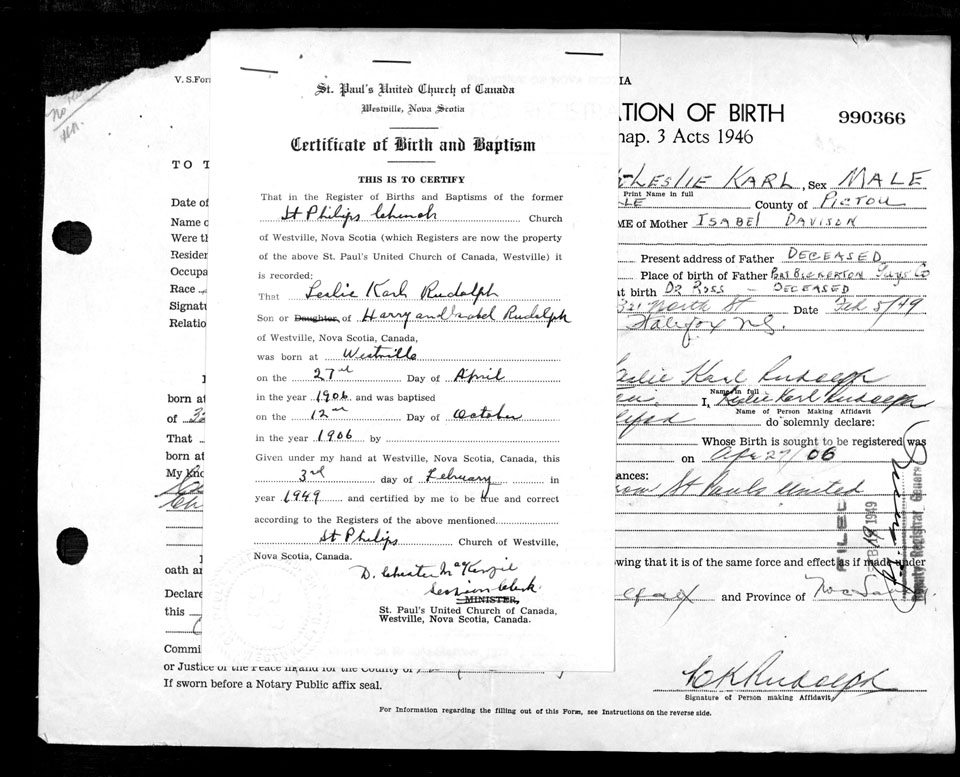 St. Paul's United Church of Canada
Westville, Nova Scotia
Certificate of Birth and Baptism
THIS IS TO CERTIFY
That in the Register of Births and Baptisms of the former
St Philips Church Church
of Westville, Nova Scotia (which Registers are now the property
of the above St. Paul's United Church of Canada, Westville) it
is recorded:
That Leslie Karl Rudolph
Son or Daughter of Harry and Isabel Rudolph
of Westville, Nova Scotia, Canada,
was born at Westville
on the 27th Day of April
in the year 1906 and was baptised
on the 12th Day of October
in the year 1906 by
Given under my hand at Westville, Nova Scotia, Canada, this
3rd day of February in
year 1949 and certified by me to be true and correct
according to the Registers of the above mentioned
St Philips Church of Westville,
Nova Scotia, Canada.
D. Chester MacKenzie
Session Clerk
MINISTER,
St. Paul's United Church of Canada,
Westville, Nova Scotia, Canada.
V. S. For
TO T
Date of
Name o
Were th
Residen
Occupa
Race
Signatu
Relatio
born at
of
That
born at
My kno
oath an
Declare
this
Commi
or Justice of the Peace in and for the County of
If sworn before a Notary Public affix seal.
IA
TION OF BIRTH
990366
hap. 3 Acts 1946
LESLIE KARL, Sex MALE
Print Name in full
LE County of PICTOU
ME of Mother ISABEL DAVISON
Present address of Father DECEASED
Place of birth of Father PORT BICKERTON Guys Co
at birth DR ROSS - DECEASED
321 North St Date Feb 5/49
Halifax N.S.
Leslie Karl Rudolph
Name in full
I, Leslie Karl Rudolph
Name of Person Making Affidavit
do solemnly declare:
Whose Birth is sought to be registered was
on Apr 27/06
tances:
from St Pauls United
FILED
FEB 19 1949
Deputy Registrar General
owing that it is of the same force and effect as if made under
lifax and Province of
L K Rudolph
Signature of Person making Affidavit
For Information regarding the filling out of this Form, see Instructions on the reverse side.